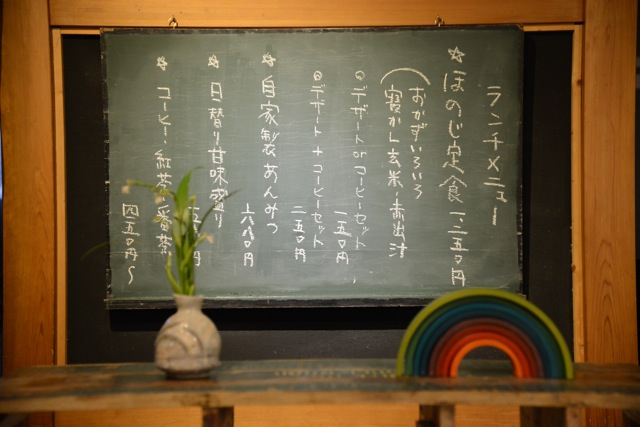 ランチメニュー
☆ほのじ定食 一、二五〇円
(おかずいろいろ
寝かし玄米、赤出汁
◎デザート or コーヒーセット
一五〇円
◎デザート + コーヒーセット
二五〇円
☆自家製あんみつ
六八〇円
☆日替り甘味
円
☆コーヒー・紅茶・番茶
四五〇円～